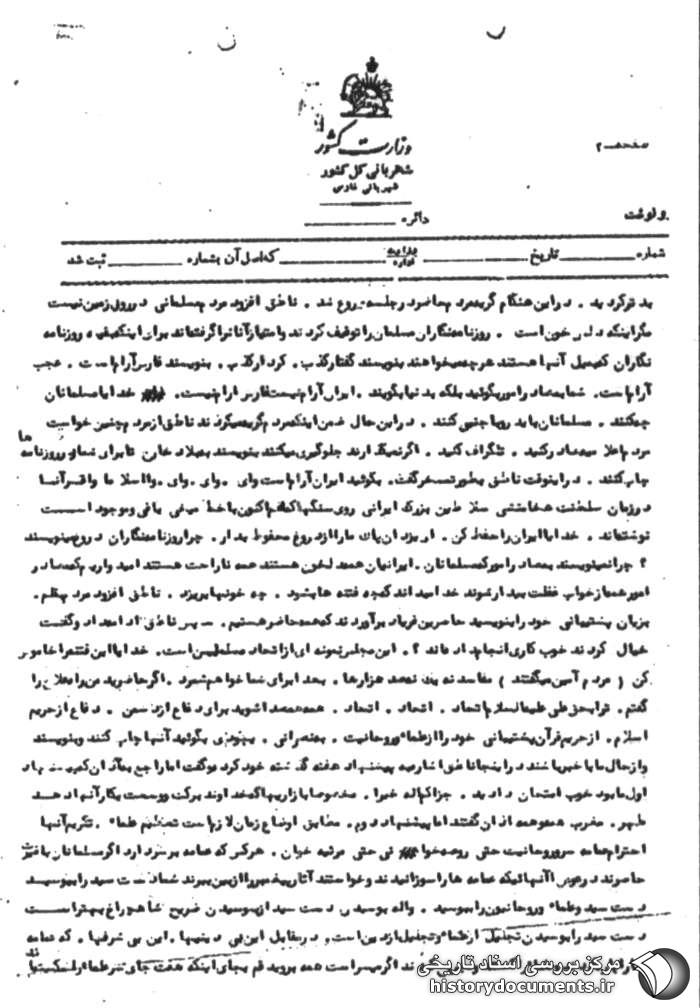 صفحه ۲
وزارت کشور
شهربانی کل کشور
شهربانی فارس
رونوشت
دائره
شماره تاریخ اداره که اصل آن بشماره ثبت شد
بدتر گردید . در این هنگام گریه مردم حاضر در جلسه شروع شد . ناطق افزود مردم مسلمانی در روی زمین نیست
مگر اینکه دلش خون است . روزنامه نگاران مسلمان را توقیف کردند و امتیاز آنانرا گرفته اند برای اینکه بقیه روزنامه
نگاران که میل آنها هستند هر چه میخواهند بنویسند گفتار کذب . کردار کذب . بنویسند فارس آرام است . عجب
آرام است . شما بمصادر امور بگوئید بلکه بدنیا بگویند . ایران آرام نیست فارس ارام نیست . خدایا مسلمانان
چه کنند . مسلمانان باید رو بجا کنند . در این حال ضمن اینکه مردم گریه میکردند ناطق از مردم چنین خواست
مردم اعلامیه صادر کنید . تلگراف کنید . اگر نمیگذارند جلوگیری میکنند بنویسند به بلاد خارج تا برای شما در روزنامه ها
چاپ کنند . در اینوقت ناطق بطور تمسخر گفت . بگوئید ایران آرام است وای . وای . وای . وا اسلاما وا قرآنا
در زمان سلطنت هخامنشی سلاطین بزرگ ایرانی روی سنگها که هم اکنون با خط میخی باقی و موجود است
نوشته اند . خدایا ایران را حفظ کن . ای یزدان پاک ما را از دروغ محفوظ بدار . چرا روزنامه نگاران دروغ مینویسند
؟ چرا نمینویسند بمصادر امور که مسلمانان . ایرانیان همه دلخون هستند همه ناراحت هستند امیدواریم که مصادر
امور همه از خواب غفلت بیدار شوند خدا میداند که چه فتنه ها بشود . چه خونها بریزد . ناطق افزود مردم
بزبان پشتیبانی خود را بنویسید حاضرین فریاد برآوردند که همه حاضر هستیم . سپس ناطق ادامه داد و گفت
خیال کردند خوب کاری انجام داده اند ؟ . این مجلس نمونه ای از اتحاد مسلمین است . خدایا این فتنه را خاموش
کن ( مردم آمین میگفتند ) مفاسد نه یک نه صد هزارها . بعدا برای شما خواهم شمرد . اگر حاضرید من راه علاج را
گفتم . ترا بحق علی علیه السلام اتحاد . اتحاد . اتحاد . همه همصدا شوید برای دفاع از دشمن . دفاع از حریم
اسلام . از حریم قرآن پشتیبانی خود را از علماء و روحانیت . بگوئید آنها چاپ کنند و بنویسند
و از حال ما با خبر باشند در اینجا ناطق اشاره به پیشنهاد هفته گذشته خود کرد و گفت اما راجع به آذان که پیشنهاد
اول ما بود خوب امتحان دادید . جزاکم الله خیرا . مخصوصا بازاریها که خداوند برکت و وسعت بکار آنها دهد
ظهر . مغرب همه و همه اذان گفتند اما پیشنهاد دوم . مطابق اوضاع زمان لازم است تعظیم علماء . تکریم آنها
احترام عمامه سر و روحانیت حتی روضه خوا نی حتی مرثیه خوان . هر کس که عمامه بر سر دارد اگر مسلمانان با
حاضرند در عوض آنها ئیکه عمامه ها را سوزانیدند و خواستند آثار پیغمبر را از بین ببرند شما دست سید را ببوسید
دست سید و علماء و روحانیون را ببوسید . والله بوسیدن دست سید از بوسیدن ضریح شاهچراغ بهتر است
دست سید را بوسیدن تجلیل از علماء و تجلیل از دین است و در مقابل این بی دینیها . این بی شرفیها . که عمامه
اگر میسر است همه بروید قم بجای اینکه هفت جای سر علماء را شکستند
مرکز بررسی اسناد تاریخی
historydocuments.ir